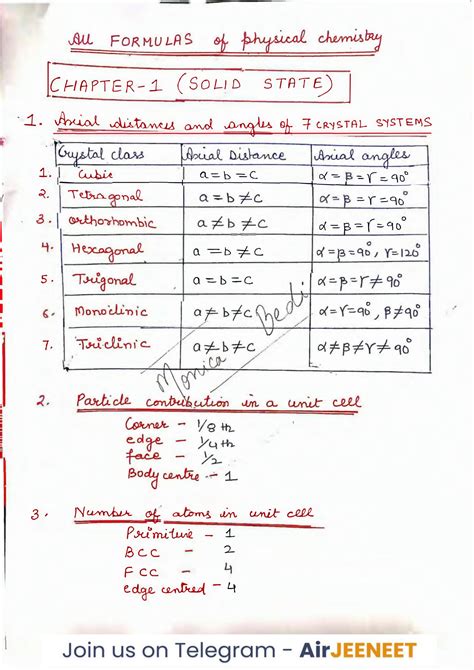 All FORMULAS of physical chemistry
CHAPTER-1 (SOLID STATE)
1. Axial distances and angles of 7 CRYSTAL SYSTEMS
Crystal class Axial Distance Axial angles
1. Cubic a=b=c α=β=γ=90°
2. Tetragonal a=b≠c α=β=γ=90°
3. Orthorhombic a≠b≠c α=β=γ=90°
4. Hexagonal a=b≠c α=β=90°, γ=120°
5. Trigonal a=b=c α=β=γ≠90°
6. Monoclinic a≠b≠c α=γ=90°, β≠90°
7. Triclinic a≠b≠c α≠β≠γ≠90°
Monica Bedi
2. Particle contribution in a unit cell
Corner - 1/8 th
edge - 1/4 th
face - 1/2
Body centre - 1
3. Number of atoms in unit cell
Primitive - 1
BCC - 2
FCC - 4
edge centred - 4
Join us on Telegram - AirJEENEET